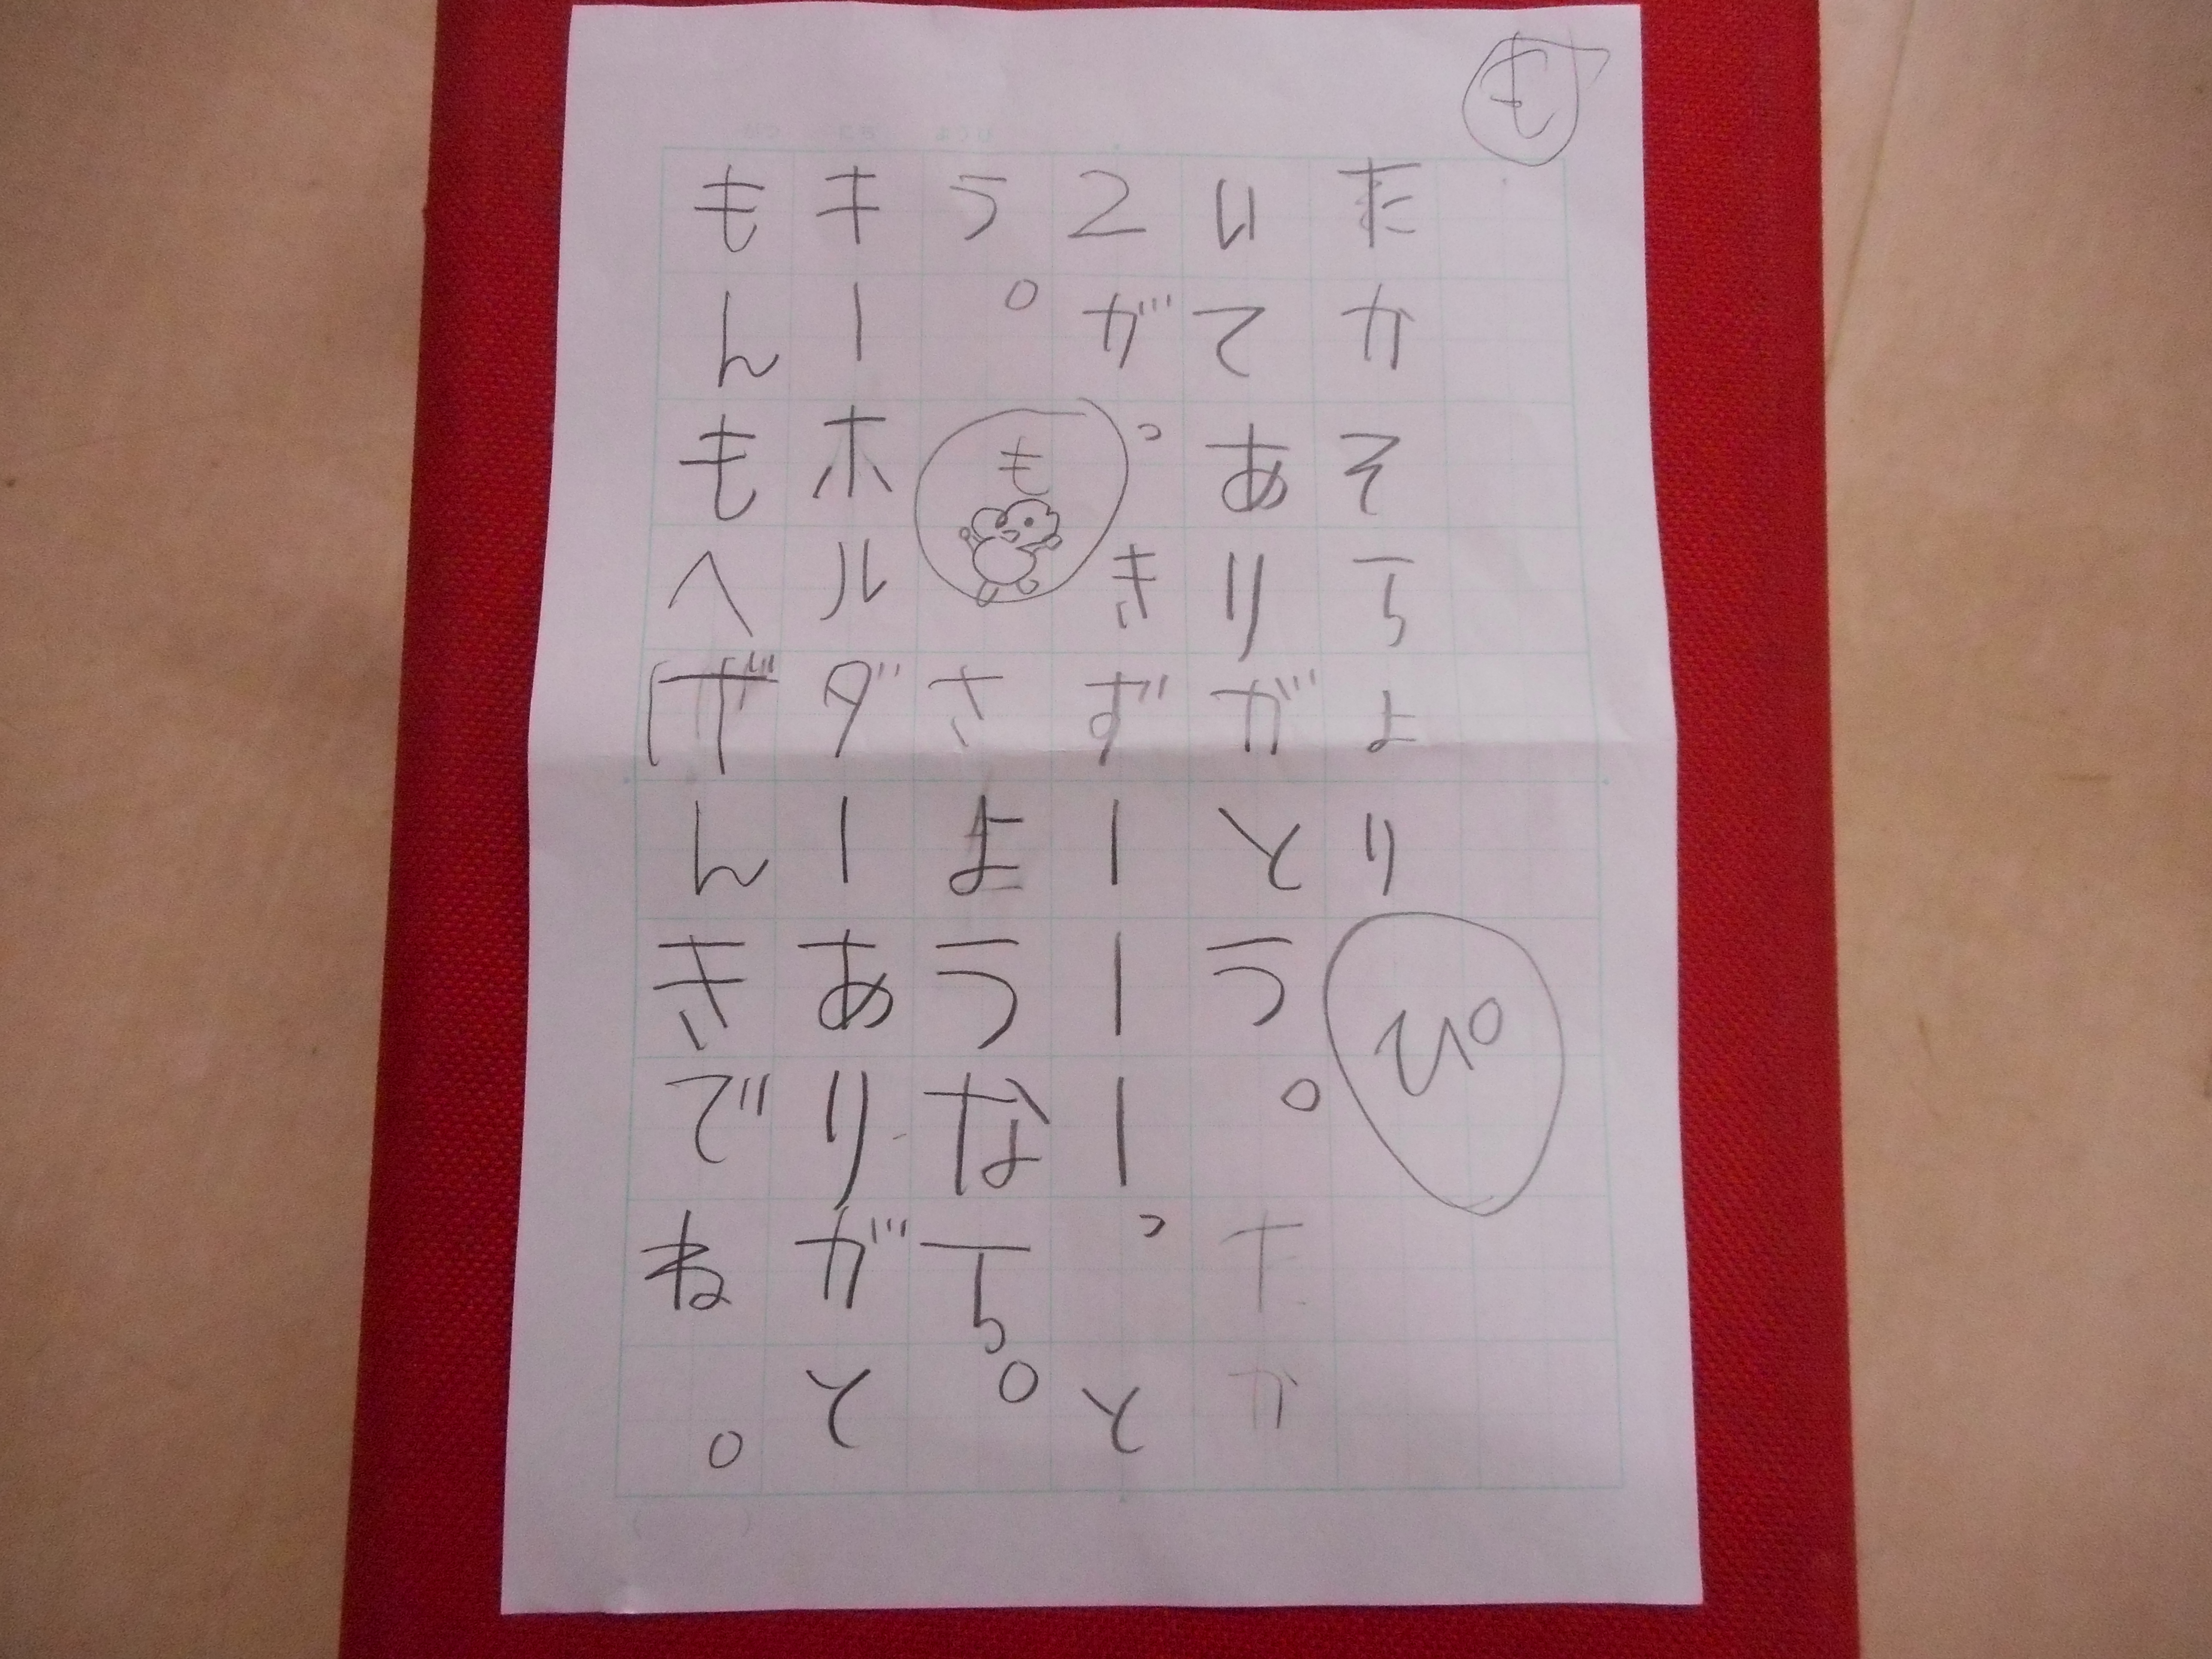 もんもへげんきでね。
キーホルダーありがと
う。もさようなら。
2がっきずーーーっと
いてありがとう。たか
たかそらよりぴ
も